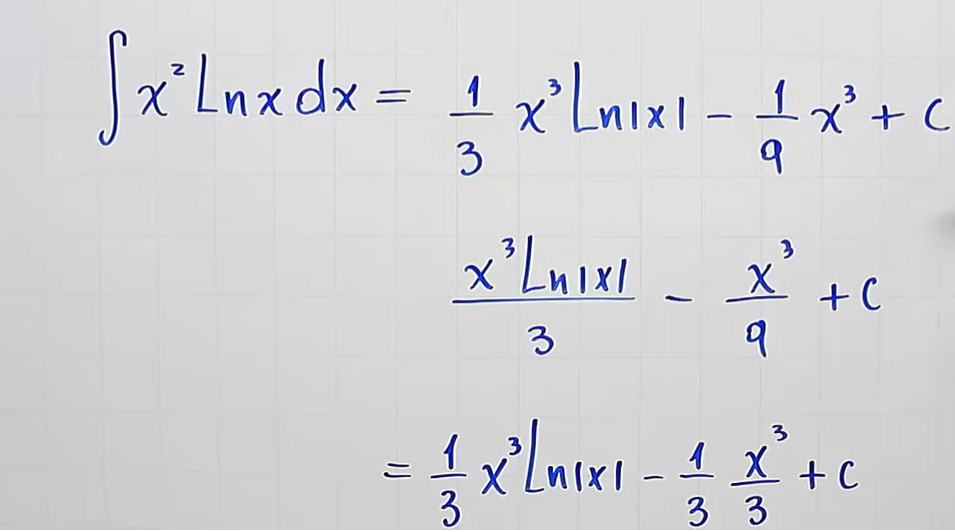 ∫ x² Ln x dx = 1/3 x³ Ln|x| - 1/9 x³ + C
x³ Ln|x| / 3 - x³/9 + C
= 1/3 x³ Ln|x| - 1/3 x³/3 + C